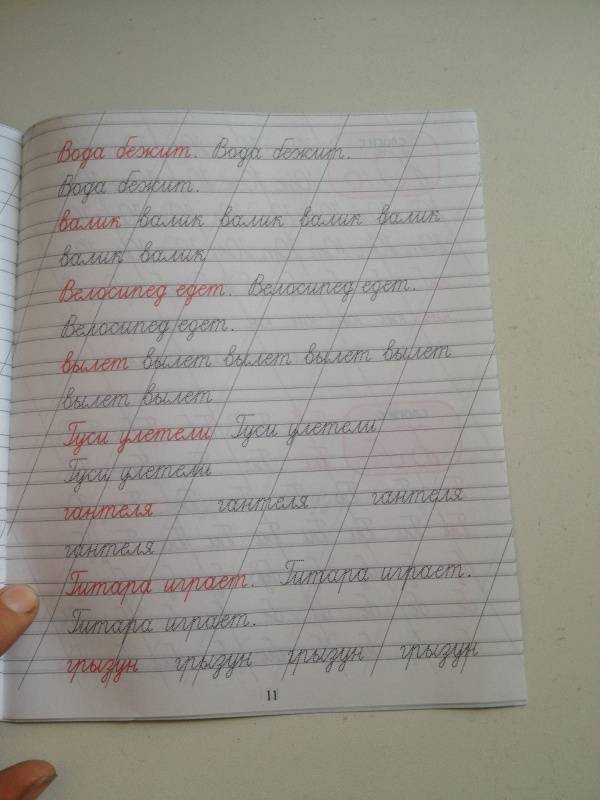 Вода бежит. Вода бежит.
Вода бежит.
валик валик валик валик валик
валик валик
Велосипед едет. Велосипед едет.
Велосипед едет.
вылет вылет вылет вылет вылет
вылет вылет
Гуси улетели Гуси улетели
Гуси улетели
гантеля гантеля гантеля
гантеля
Гитара играет. Гитара играет.
Гитара играет.
грызун грызун грызун грызун
11